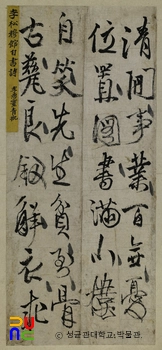 李松穆館自書詩
清閒事業百無憂
位置圖書滿小樓
自笑先生貧到骨
古良劒解衣
© 성균관대학교 박물관.